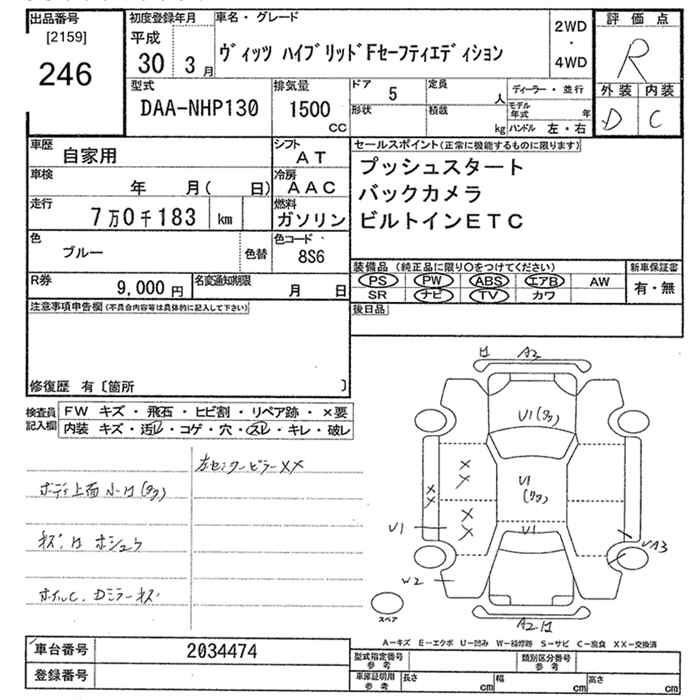 出品番号
[2159]
246
初度登録年月
平成
30 3 月
車名・グレード
ヴィッツ ハイブリッドFセーフティエディション
2WD
・
4WD
評価点
R
外装 内装
D C
型式
DAA-NHP130
排気量
1500
CC
ドア
5
定員
人
形状
積載
kg
ディーラー・並行
モデル年式
年
ハンドル 左・右
車歴
自家用
シフト
AT
車検
年 月( 日)
冷房
AAC
走行
7万0千183 km
燃料
ガソリン
色
ブルー
色替
色コード
8S6
R券
9,000 円
名変通知期限
月 日
セールスポイント(正常に機能するものに限ります)
プッシュスタート
バックカメラ
ビルトインETC
装備品(純正品に限り○をつけてください)
PS PW ABS エアB AW
SR ナビ TV カワ
新車保証書
有・無
後日品
注意事項申告欄(不具合内容等は具体的に記入して下さい)
修復歴 有〔箇所 〕
検査員
記入欄
FW キズ・飛石・ヒビ割・リペア跡・×要
内装 キズ・汚レ・コゲ・穴・スレ・キレ・破レ
左センターピラーXX
ボディ上面 小
キズ
ホイルC. Dミラーキズ
A2
U1
U1
U1
U1
W2
A3
A2
XX
XX
XX
スペア
A-キズ E-エクボ U-凹み W-補修跡 S-サビ C-腐食 XX-交換済
車台番号
2034474
登録番号
型式指定番号
参考
類別区分番号
参考
車庫証明用
参考
長さ
cm
幅
cm
高さ
cm